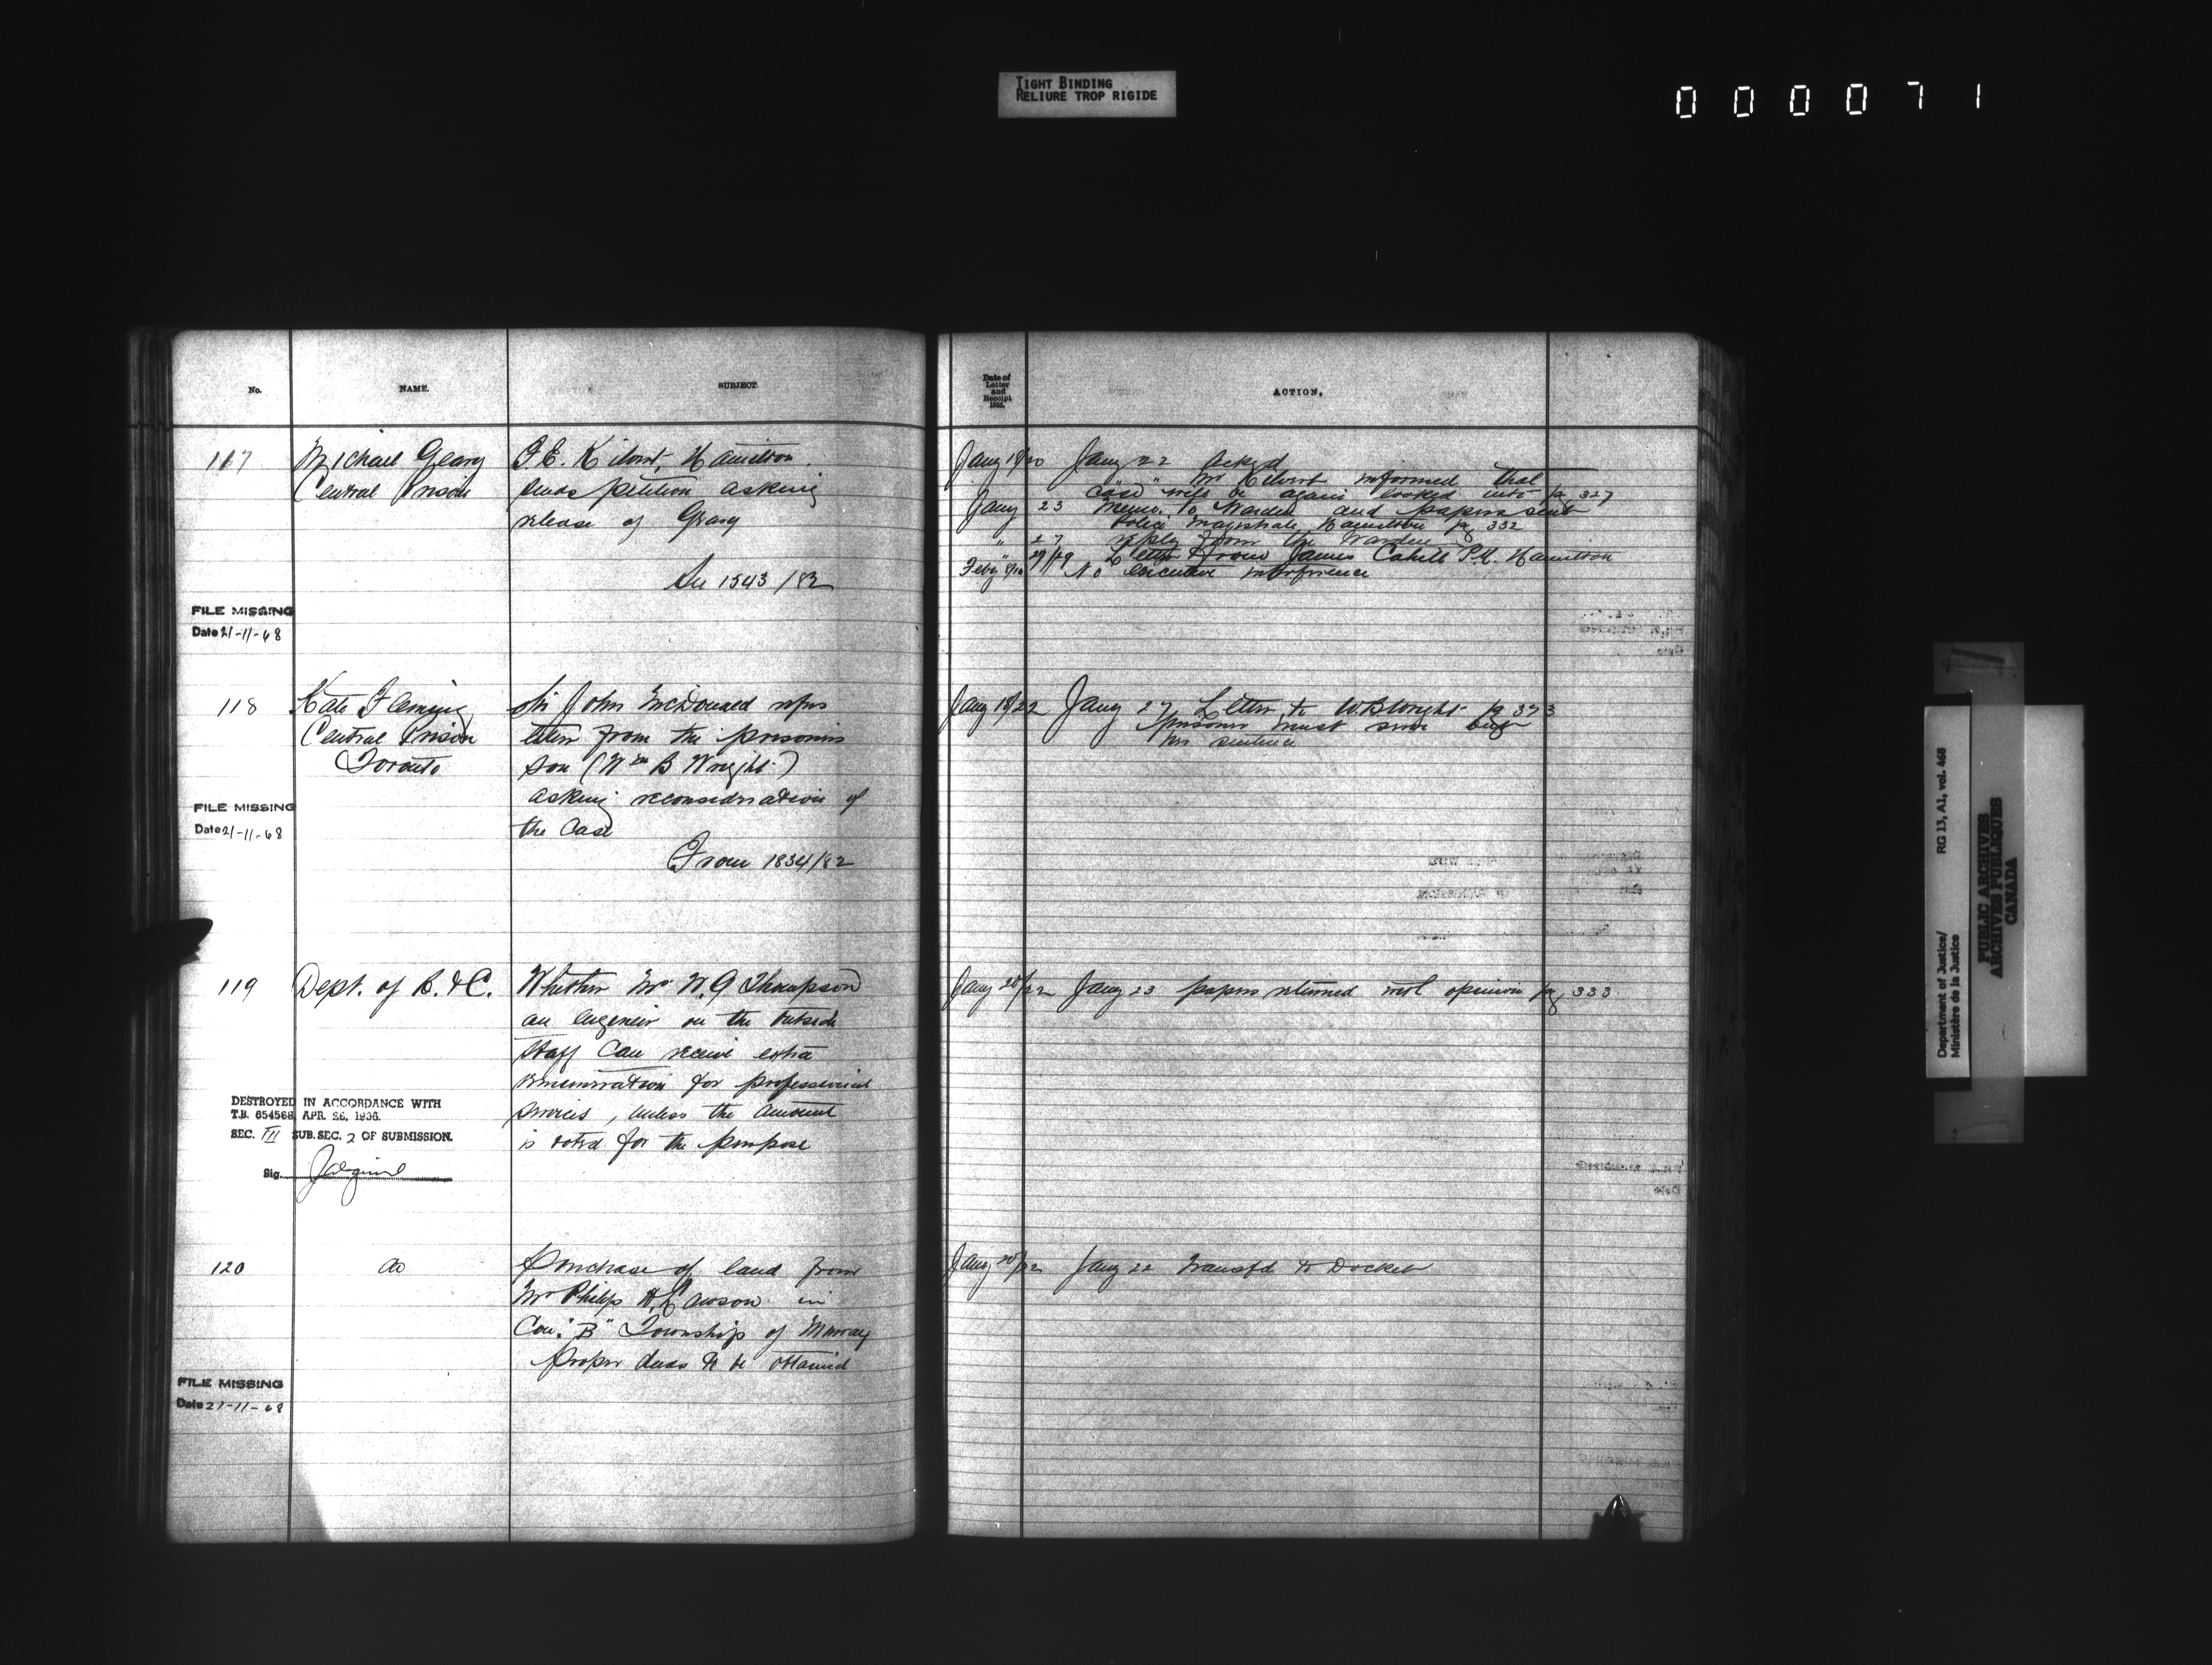 TIGHT BINDING
RELIURE TROP RIGIDE
000071
No.
NAME.
SUBJECT.
117
Michael Geary
Central Prison
F.E. Kilvert, Hamilton.
sends petition asking
release of Geary
See 1543/82
FILE MISSING
Date 21-11-68
118
Kate Fleming
Central Prison
Toronto
Sir John McDonald refers
letter from the prisoners
son (Wm B Wright)
asking reconsideration of
the case
From 1834/82
FILE MISSING
Date 21-11-68
119
Dept. of R. & C.
Whether Mr W. G Thompson
an Engineer on the outside
staff can receive extra
remuneration for professional
services, unless the amount
is voted for the purpose
DESTROYED IN ACCORDANCE WITH
T.B. 654568, APR. 26, 1936.
SEC. III SUB. SEC. 2 OF SUBMISSION.
Sig.
120
do
Purchase of land from
Mr Philip H. Lawson in
Con. "B" Township of Murray
proper deeds to be obtained
FILE MISSING
Date 21-11-68
Date of
Letter
and
Receipt
188
ACTION.
Jany 19/20 Jany 22 Ackd
" " Mr Kilvert informed that
case will be again looked into pg 327
Jany 23 Memo. to Warden and papers sent
Police Magistrate Hamilton pg 332
" 27 reply from the Warden
" 27/29 Letter from James Cahill P.M. Hamilton
Feby 9/10 No executive interference
Jany 18/22 Jany 27 Letter to W.B Wright pg 373
prisoner must serve out
her sentence
Jany 20/22 Jany 23 papers returned with opinion pg 333
Jany 20/22 Jany 22 Transfd to Docket
Department of Justice/
Ministère de la Justice
RG 13, A1, vol. 468
PUBLIC ARCHIVES
ARCHIVES PUBLIQUES
CANADA